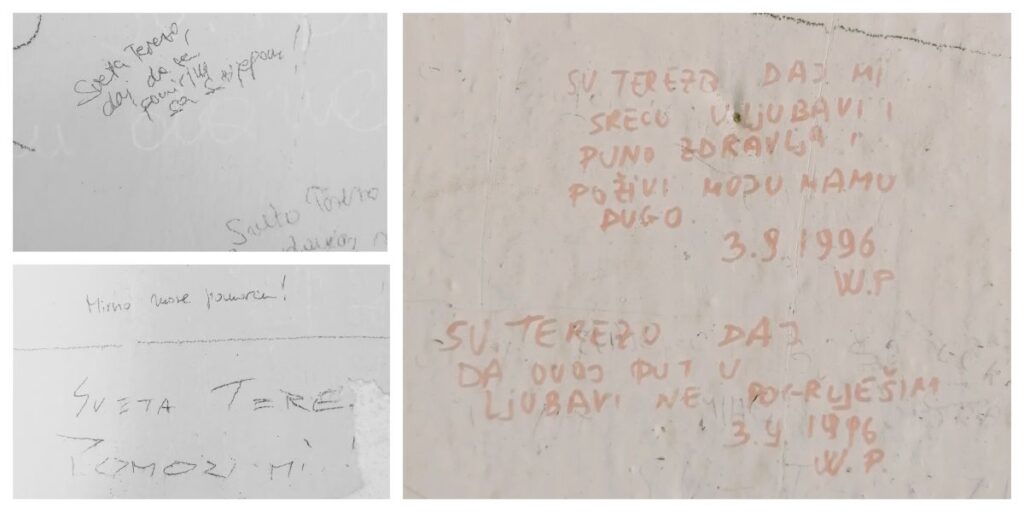 Sveta Terezo,
daj da se
pomirim
sa Stjepanom!
Sveta Terezo
Mirno more pomorcu!
SVETA TERE
POMOZI MI
SV. TEREZO DAJ MI
SREĆU U LJUBAVI I
PUNO ZDRAVLJA I
POŽIVI MOJU MAMU
DUGO
3.9.1996
W.P
SV. TEREZO DAJ
DA OVAJ PUT U
LJUBAVI NE POGRIJEŠIM
3.9.1996
W.P.